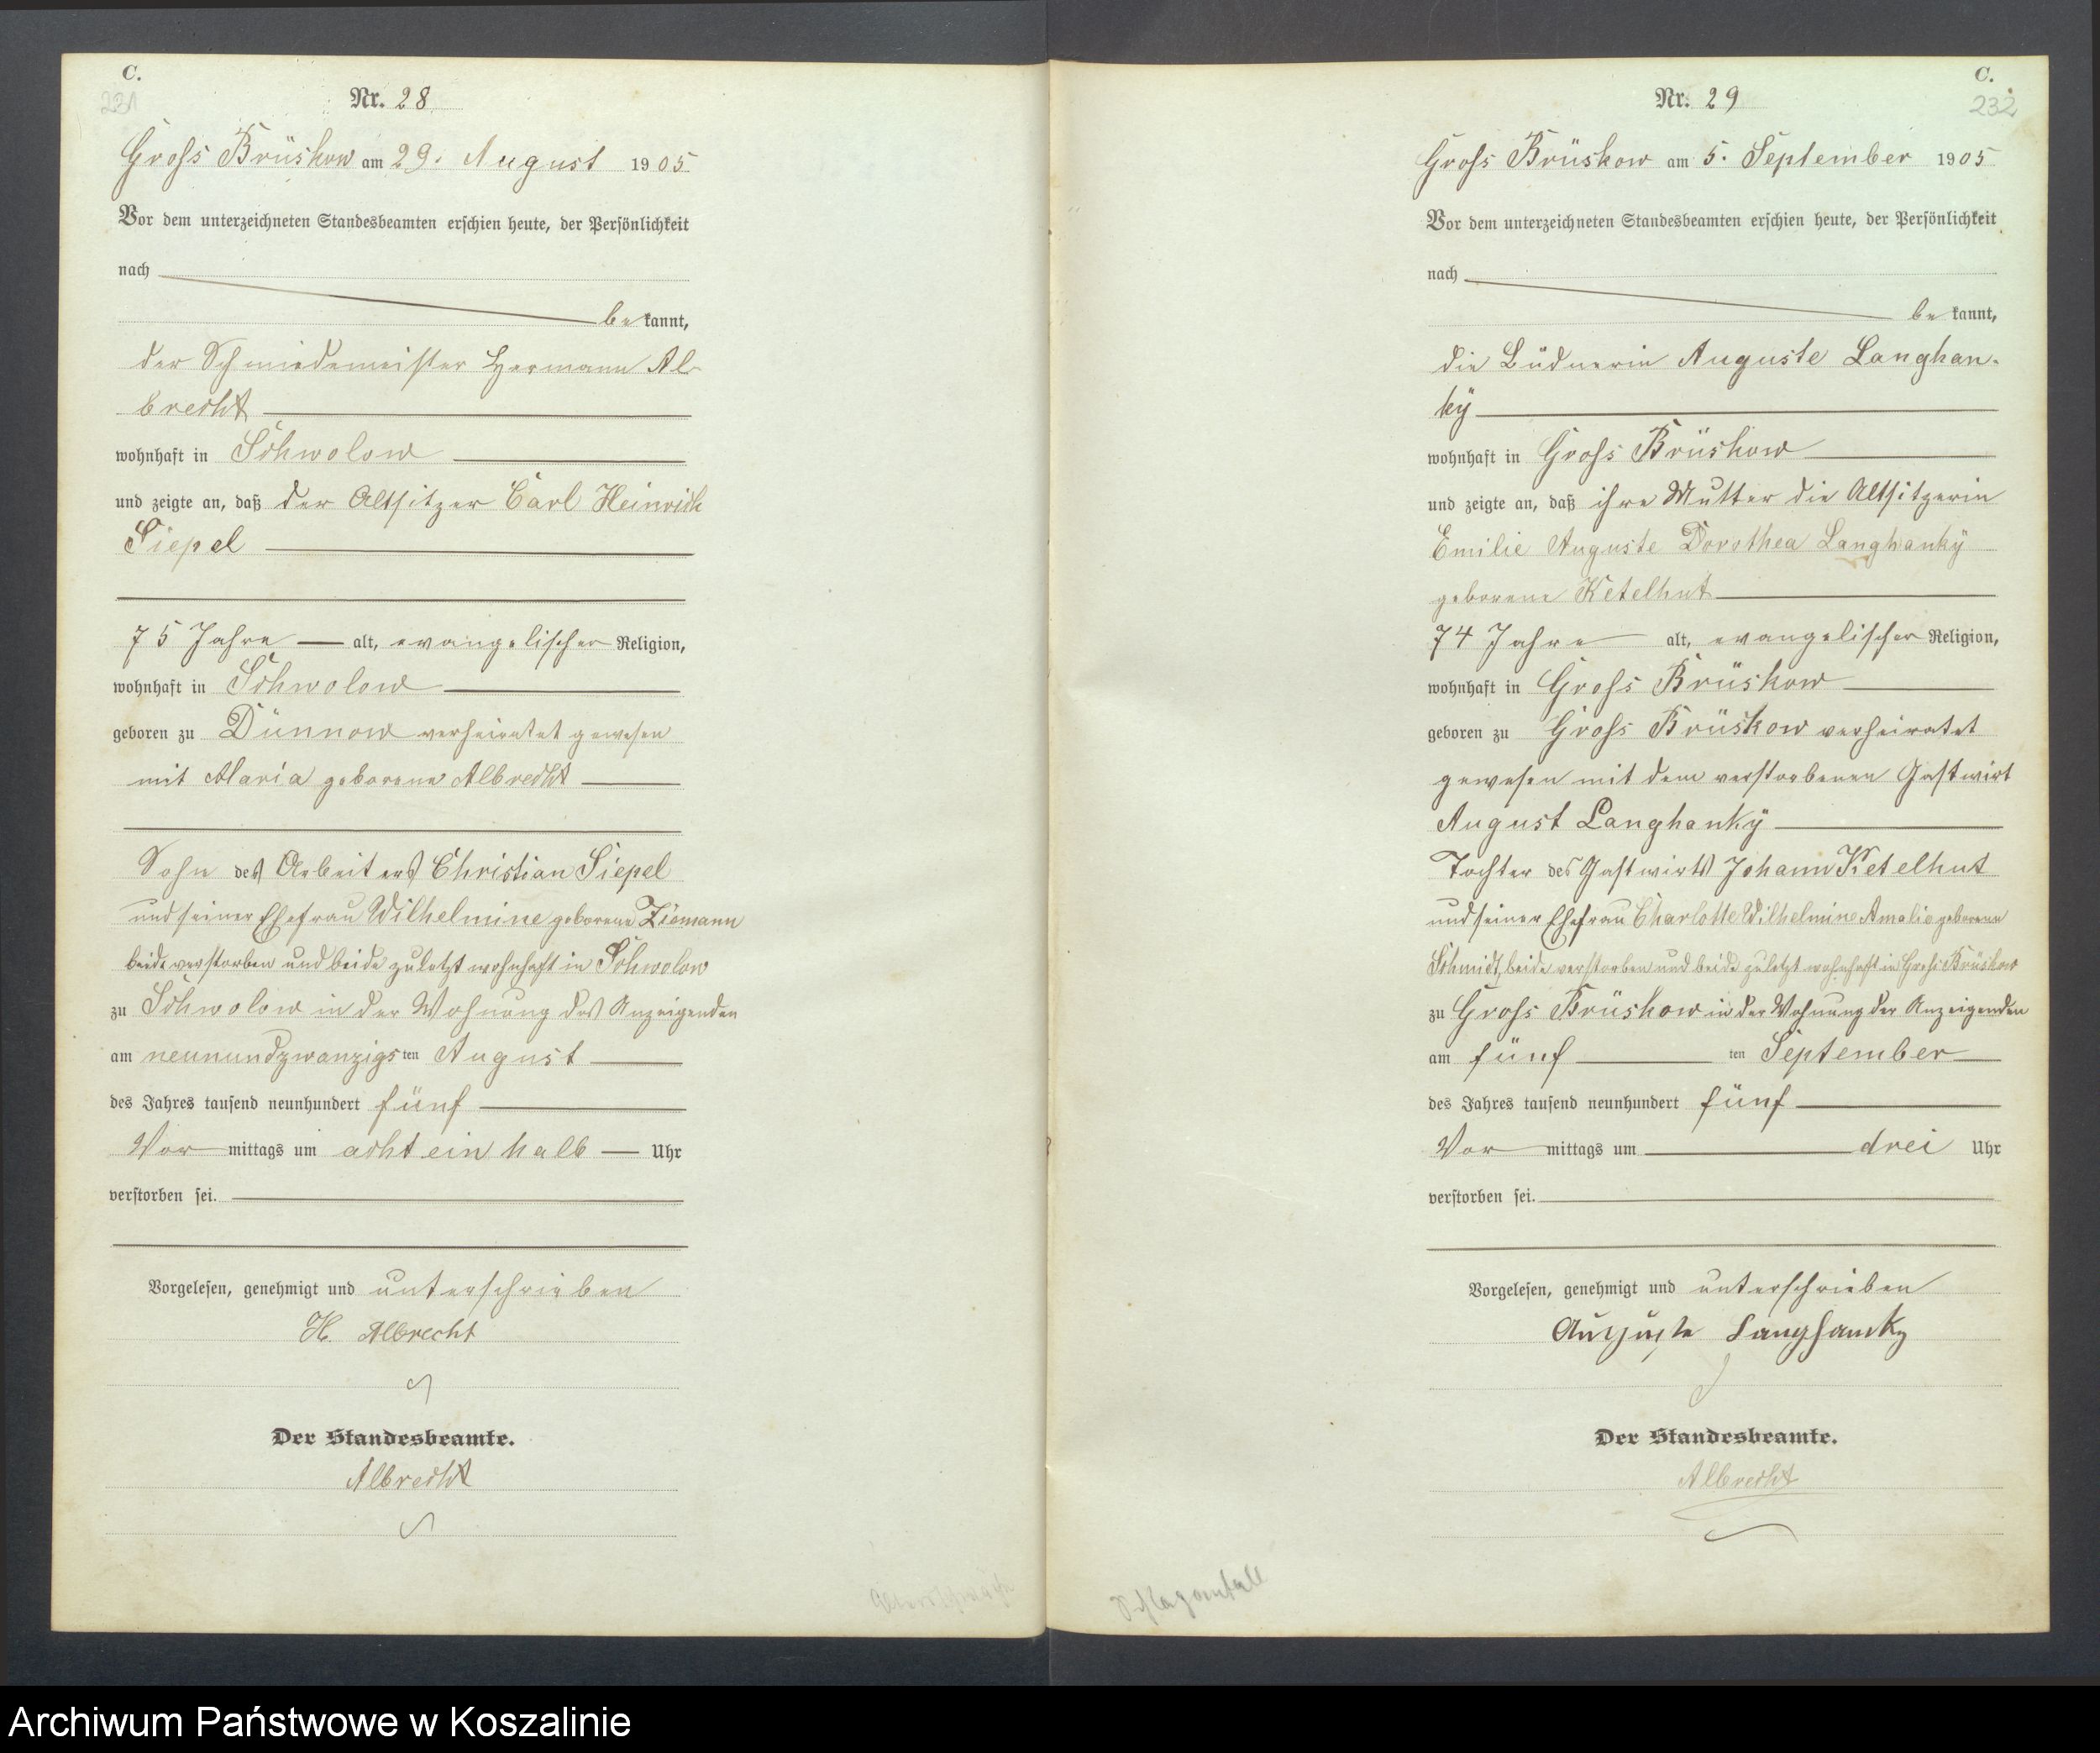 C.
221
Nr. 28
Gross Brüskow am 29. August 1905
Vor dem unterzeichneten Standesbeamten erschien heute, der Persönlichkeit
nach
bekannt,
der Schmiedemeister Hermann Al-
brecht
wohnhaft in Schwolow
und zeigte an, daß der Altsitzer Carl Heinrich
Siepel
75 Jahre alt, evangelischer Religion,
wohnhaft in Schwolow
geboren zu Dünnow verheiratet gewesen
mit Maria geborene Albrecht
Sohn des Arbeiters Christian Siepel
und seiner Ehefrau Wilhelmine geborene Ziemann
beide verstorben und beide zuletzt wohnhaft in Schwolow
zu Schwolow in der Wohnung des Anzeigenden
am neunundzwanzigsten August
des Jahres tausend neunhundert fünf
Vormittags um acht ein halb Uhr
verstorben sei.
Vorgelesen, genehmigt und unterschrieben
H. Albrecht
Der Standesbeamte.
Albrecht
Altersschwäche
C.
232
Nr. 29
Gross Brüskow am 5. September 1905
Vor dem unterzeichneten Standesbeamten erschien heute, der Persönlichkeit
nach
bekannt,
die Büdnerin Auguste Langhan-
ky
wohnhaft in Gross Brüskow
und zeigte an, daß ihre Mutter die Altsitzerin
Emilie Auguste Dorothea Langhanky
geborene Ketelhut
74 Jahre alt, evangelischer Religion,
wohnhaft in Gross Brüskow
geboren zu Gross Brüskow verheiratet
gewesen mit dem verstorbenen Gastwirt
August Langhanky
Tochter des Gastwirts Johann Ketelhut
und seiner Ehefrau Charlotte Wilhelmine Amalie geborene
Schmidt, beide verstorben und beide zuletzt wohnhaft in Gross Brüskow
zu Gross Brüskow in der Wohnung der Anzeigenden
am fünften September
des Jahres tausend neunhundert fünf
Vormittags um drei Uhr
verstorben sei.
Vorgelesen, genehmigt und unterschrieben
Auguste Langhanky
Der Standesbeamte.
Albrecht
Schlaganfall
Archiwum Państwowe w Koszalinie